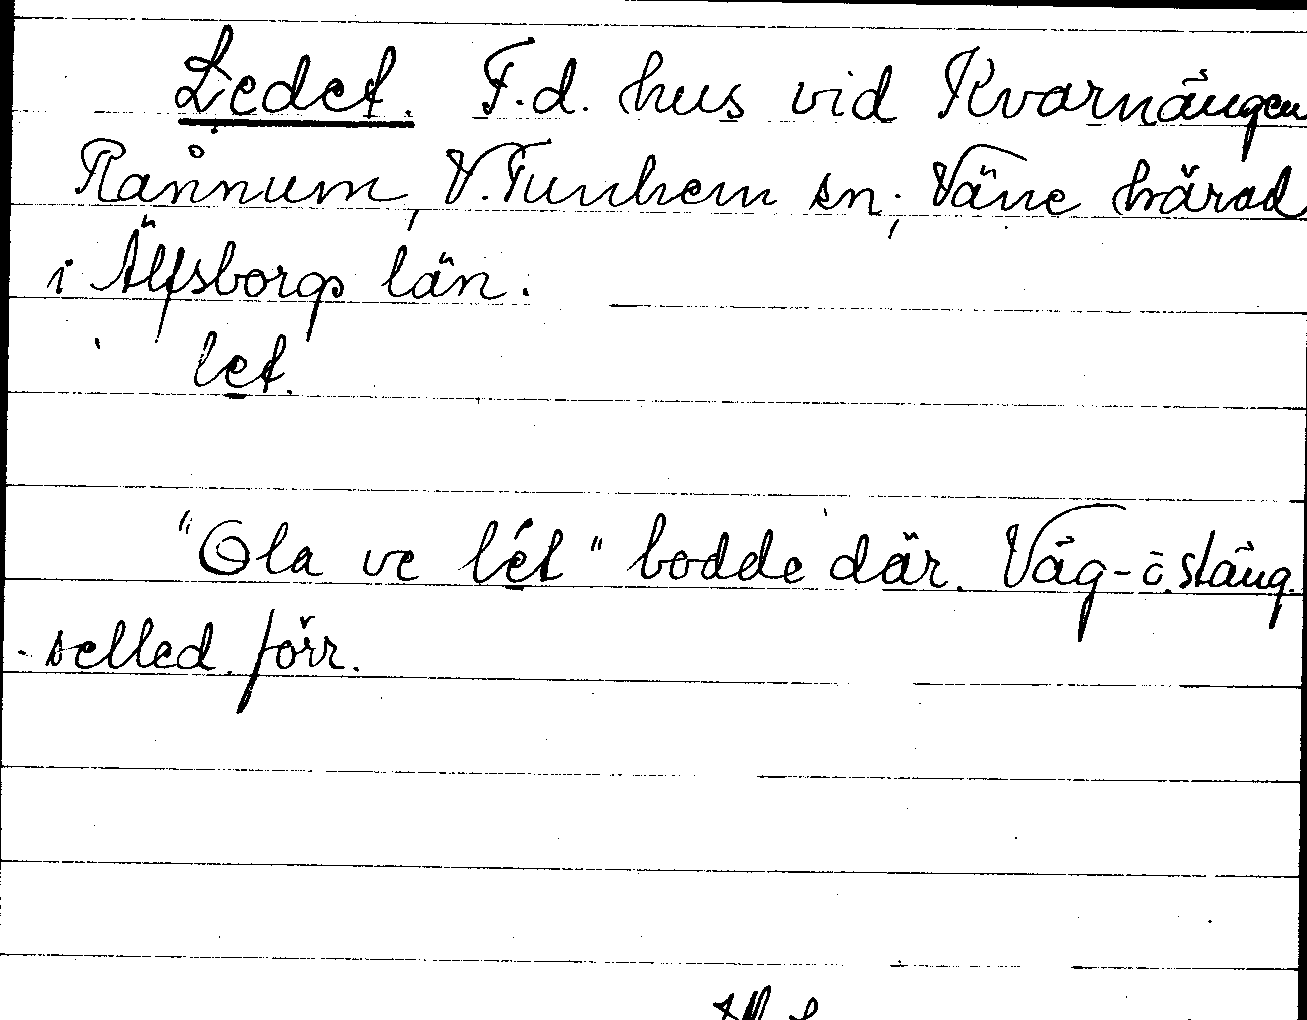 Ledet. F.d. hus vid Kvarnängen
Rånnum, V. Tunhem sn; Väne härad
i Älfsborgs län.
let.
"Ola ve lét" bodde där. Väg- o. stäng-
selled förr.